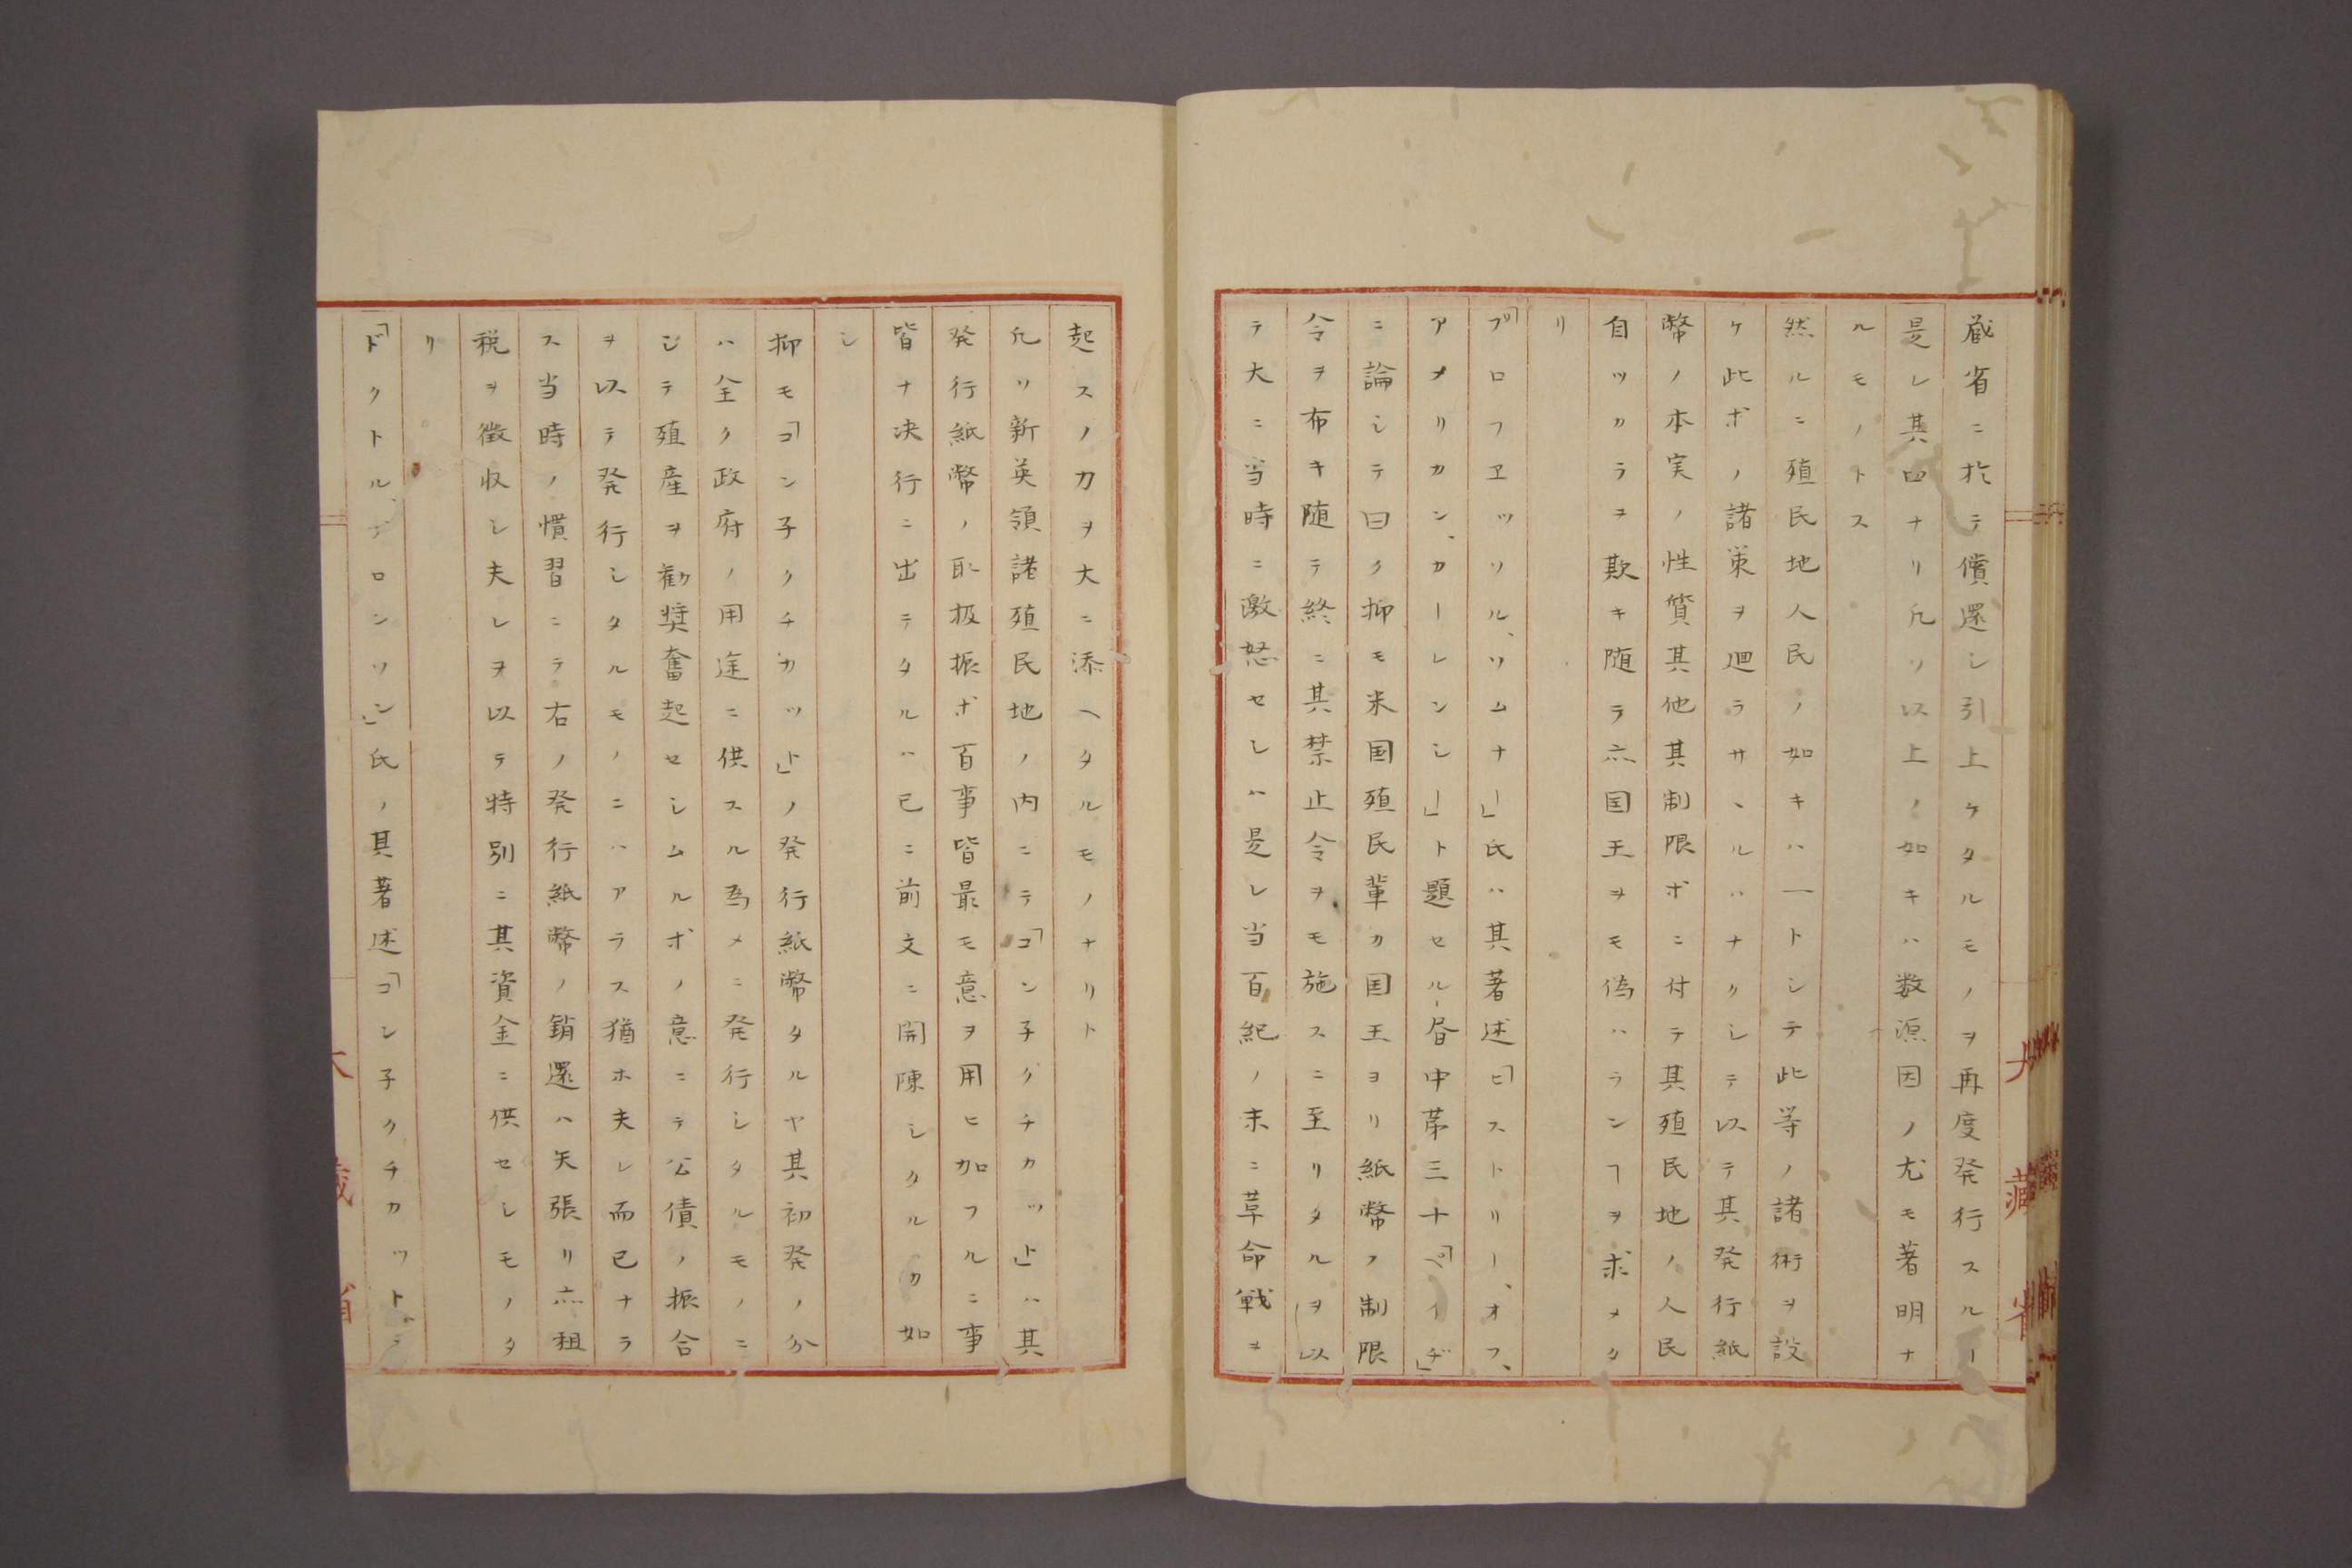 蔵省ニ於テ償還シ引上ケタルモノヲ再度発行スルー
是レ其四ナリ凡ソ以上ノ如キハ数源因ノ尤モ著明ナ
ルモノトス
然ルニ殖民地人民ノ如キハ一トシテ此等ノ諸術ヲ設
ケ此ホノ諸策ヲ廻ラサヽルハナクシテ以テ其発行紙
幣ノ本実ノ性質其他其制限ホニ付テ其殖民地ノ人民
自ツカラヲ欺キ随ラ亦国王ヲモ偽ハランヿヲ求メタ
リ
「プロフヱツソル、ソムナー」氏ハ其著述「ヒストリー、オフ、
アメリカン、カーレンシー」ト題セルー昏中苐三十「ペイヂ」
ニ論シテ曰ク抑モ米国殖民輩カ国王ヨリ紙幣ノ制限
令ヲ布キ随テ終ニ其禁止令ヲモ施スニ至リタルヲ以
テ大ニ当時ニ激怒セシハ是レ当百紀ノ末ニ革命戦ヲ
起スノ力ヲ大ニ添ヘタルモノナリト
凡ソ新英領諸殖民地ノ内ニテ「コン子クチカット」ハ其
発行紙幣ノ取扱振ホ百事皆最モ意ヲ用ヒ加フルニ事
皆ナ决行ニ出テタルハ已ニ前文ニ開陳シタルカ如
シ
抑モ「コン子クチカット」ノ発行紙幣タルヤ其初発ノ分
ハ全ク政府ノ用途ニ供スル為メニ発行シタルモノニ
シテ殖産ヲ勧奨奮起セシムルホノ意ニテ公債ノ振合
ヲ以テ発行シタルモノニハアラス猶ホ夫レ而已ナラ
ス当時ノ慣習ニテ右ノ発行紙幣ノ銷還ハ矢張リ亦租
税ヲ徴収シ夫レヲ以テ特別ニ其資金ニ供セシモノタ
リ
「ドクトル、ブロンソン」氏ノ其著述「コン子クチカット、
大蔵省
大藏省